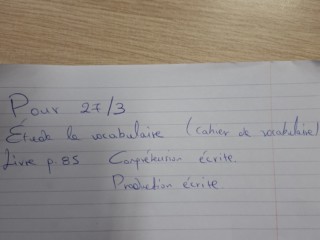 Pour 27/3
Étude le vocabulaire (Cahier de vocabulaire)
Livre p 85 Compréhension écrite.
Production écrite.